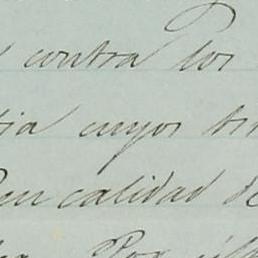 contra los
cuyos
en calidad de
Por